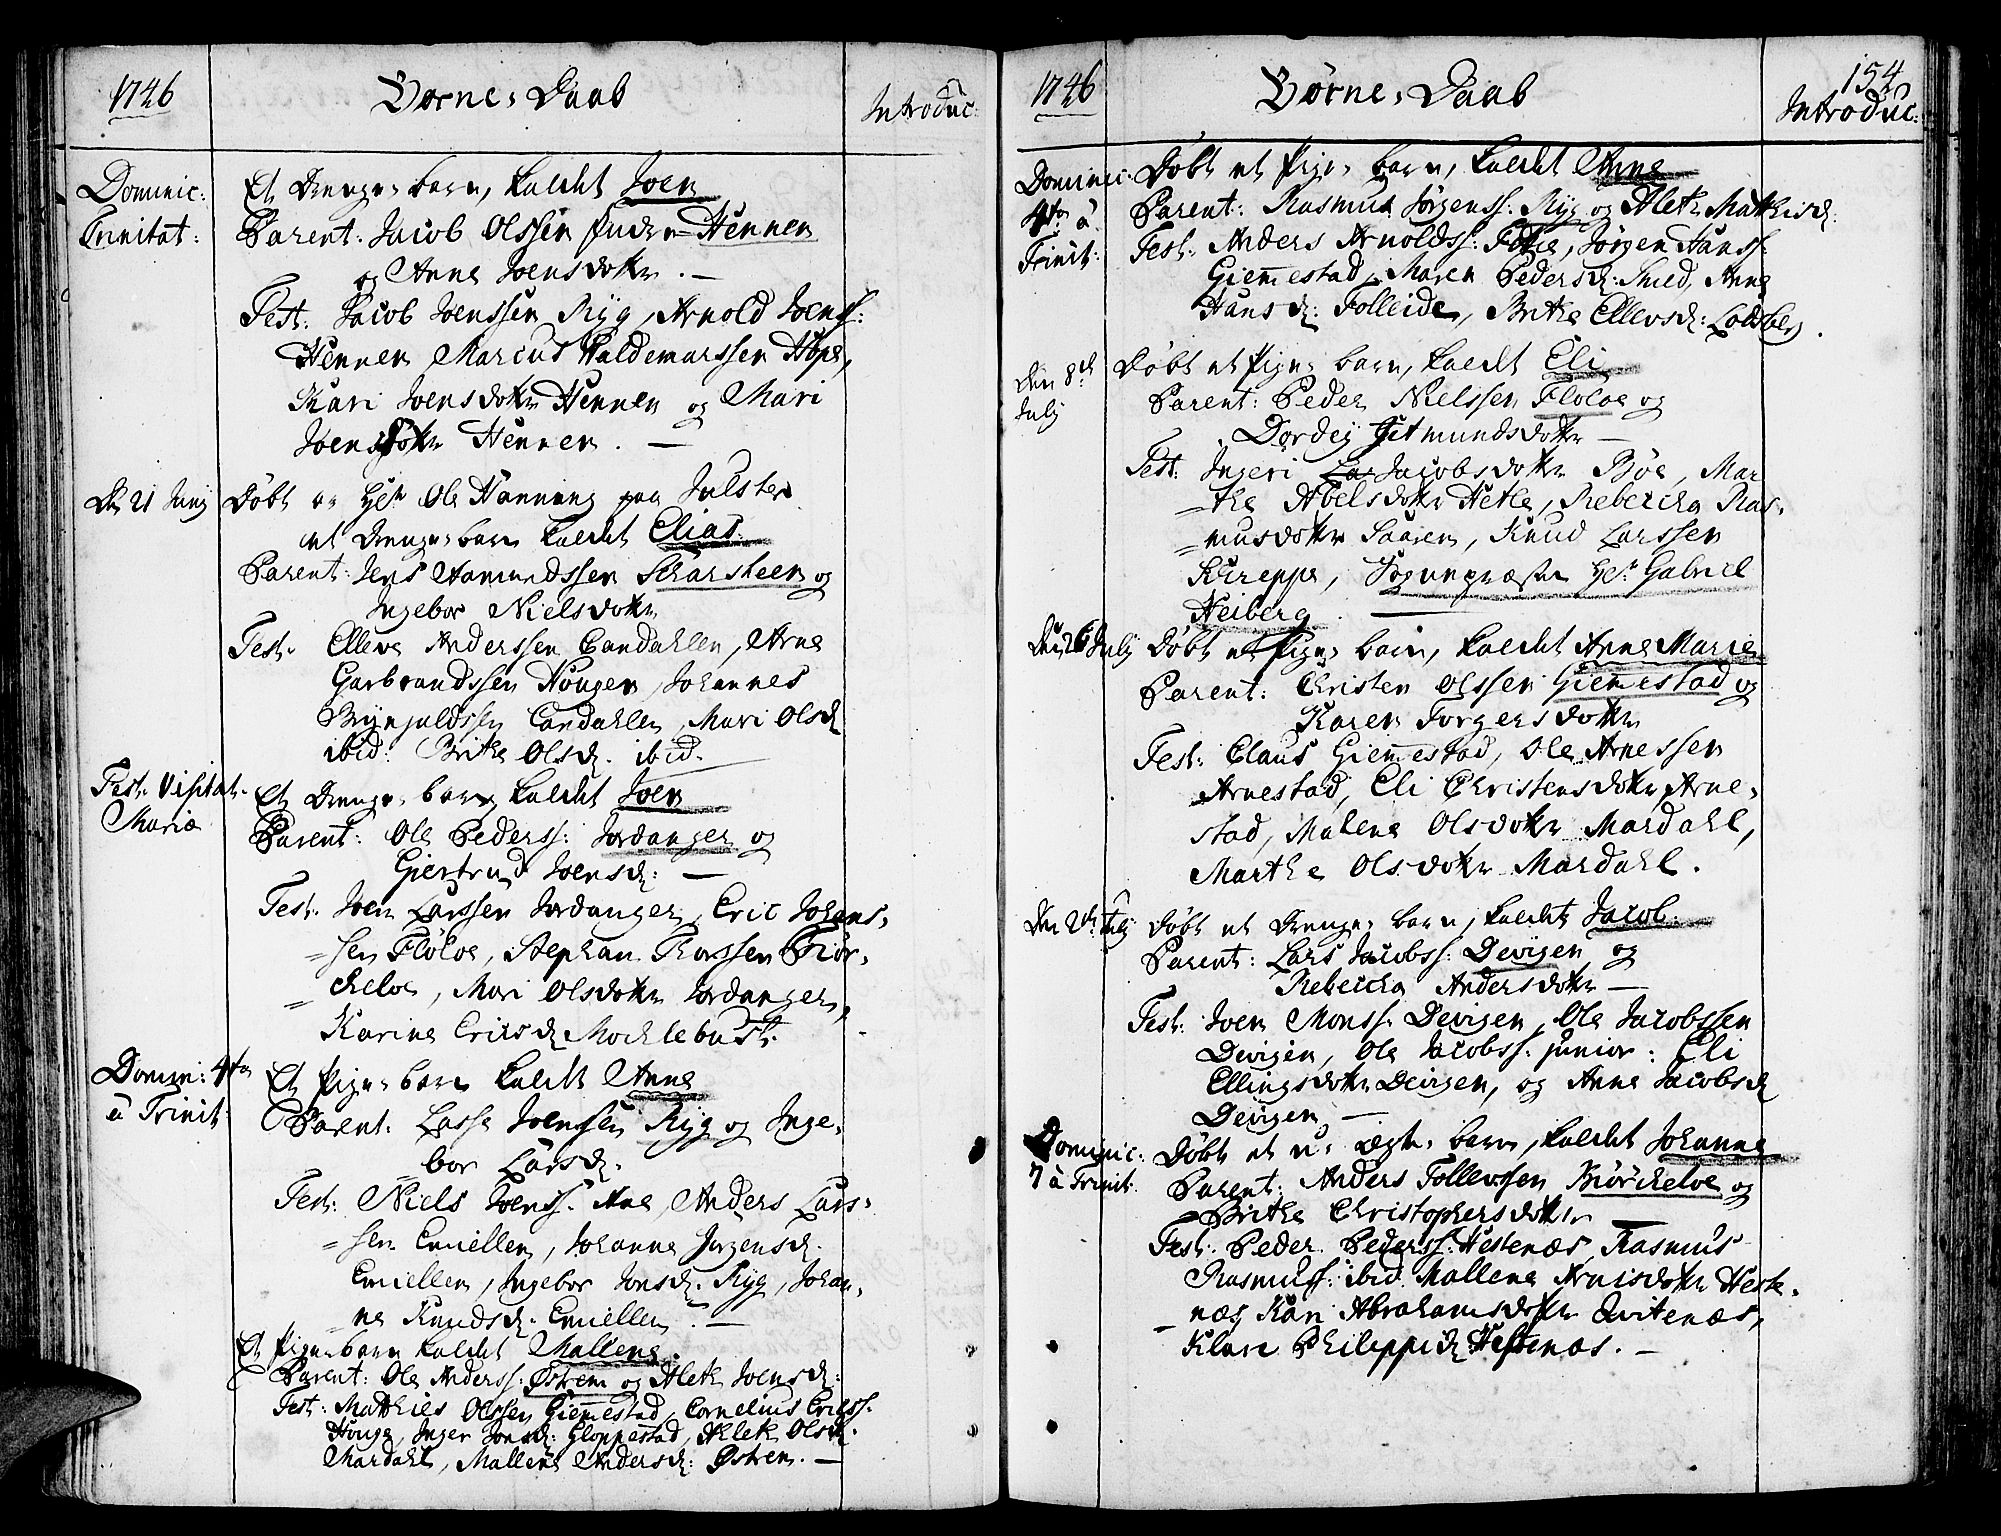 1746
Børne-Daab
Introduc:
Dominic:
Trinitat:
Et Drenge-barn, kaldet Joen
Parent: Jacob Olssen Hennen
og Anna Joensdottr. —
Test: Jacob Joenssen Ryg, Arnold Joenss:
Hennen, Marcus Waldemarssen Hope,
Kari Joensdottr Hennen og Mari
Joensdottr Hennen. —
D. 21 Junij
Døbt Hr Ole Hanning paa Julster
et Drenge-barn kaldet Elias.
Parent: Jens Aamundssen Skarsteen og
Ingebor Nielsdottr
Test. Elleve Anderssen Candahlen, Arne
Garbrandssen Hougen, Johannes
Brynjuldssen Candahlen, Mari Olsd.
ibid: Brithe Olsd. ibid.
Fest. Visitat.
Mariæ
Et Drenge-barn kaldet Joen
Parent: Ole Pederss: Jordanger og
Giertrud Joensd: —
Test. Joen Larssen Jordanger, Eric Johans-
=sen Fløloe, Stephan Thorssen Biør-
=cheloe, Mari Olsdottr Jordanger,
Karina Ericsd. Mochlebust.
Domin: 4ta
à Trinit:
Et Pige-barn kaldet Anna
Parent: Lasse Joenssen Ryg og Inge-
bor Larsd.
Test: Niels Joenss. Aae, Anders Lars-
=sen Emellem, Johanna Jørgensd.
Emellem, Ingebor Jonsd. Ryg, Johan-
=na Knudsd. Emellem. —
Et Pige-barn kaldet Mallena.
Parent: Ole Anderss: Østrem og Aleth Joensd:
Test: Mathies Olssen Giemmestad, Cornelius Ericss.
Houge, Inger Jonsd: Gloppestad, Aleth Olsd.
Mardahl, Mallena Andersd: Østrem. —
1746
Børne-Daab
154
Introduc:
Dominic:
4ta à
Trinit:
Døbt et Pige-barn, kaldet Anna
Parent: Rasmus Jørgenss: Ryg og Aleth Mathisd:
Test: Anders Arnoldss: Jørgen Hanss:
Giemmestad, Maren Pedersd: Smed, Anna
Hansd: Folleide, Brithe Ellevsd: Lodsberg.
Den 8de
Julij
Døbt et Pige-barn, kaldet Eli
Parent: Peder Nielssen Fløloe og
Dordej Jetmundsdottr —
Test: Ingeri Jacobsdottr Bøe, Mar
=the Abelsdottr Hetle, Rebecka Ras-
=musdottr Saaren, Knud Larssen
Kreppe, Sognepræsten Hr Gabriel
Heiberg. —
Den 26 Julij
Døbt et Pige-barn, kaldet Anna Marie
Parent: Christen Olssen Giemmestad og
Karen Torgersdottr
Test: Claus Giemmestad, Ole Arnessen
Arnestad, Eli Christensdottr Arne-
stad, Malena Olsdottr Mardahl,
Marthe Olsdottr Mardahl.
Julij
Døbt et Drenge-barn, kaldet Jacob.
Parent: Lars Jacobss: Devigen og
Rebecka Andersdottr —
Test: Joen Monss. Devigen, Ole Jacobssen
Devigen, Ole Jacobss: junior: Eli
Ellingsdottr Devigen, og Anna Jacobsd.
Devigen. —
Dominic:
7 à Trinit.
Døbt et u-ægte-barn, kaldet Johanna
Parent: Anders Follevssen Biørcheloe og
Brithe Christophersdottr —
Test. Peder Pederss: Hestenæs, Rasmus
Rasmuss: ibid. Mallena Arnisdottr Heste-
=næs, Kari Abrahamsdottr Qvitenæs,
Klare Philippid. Hestenæs. —